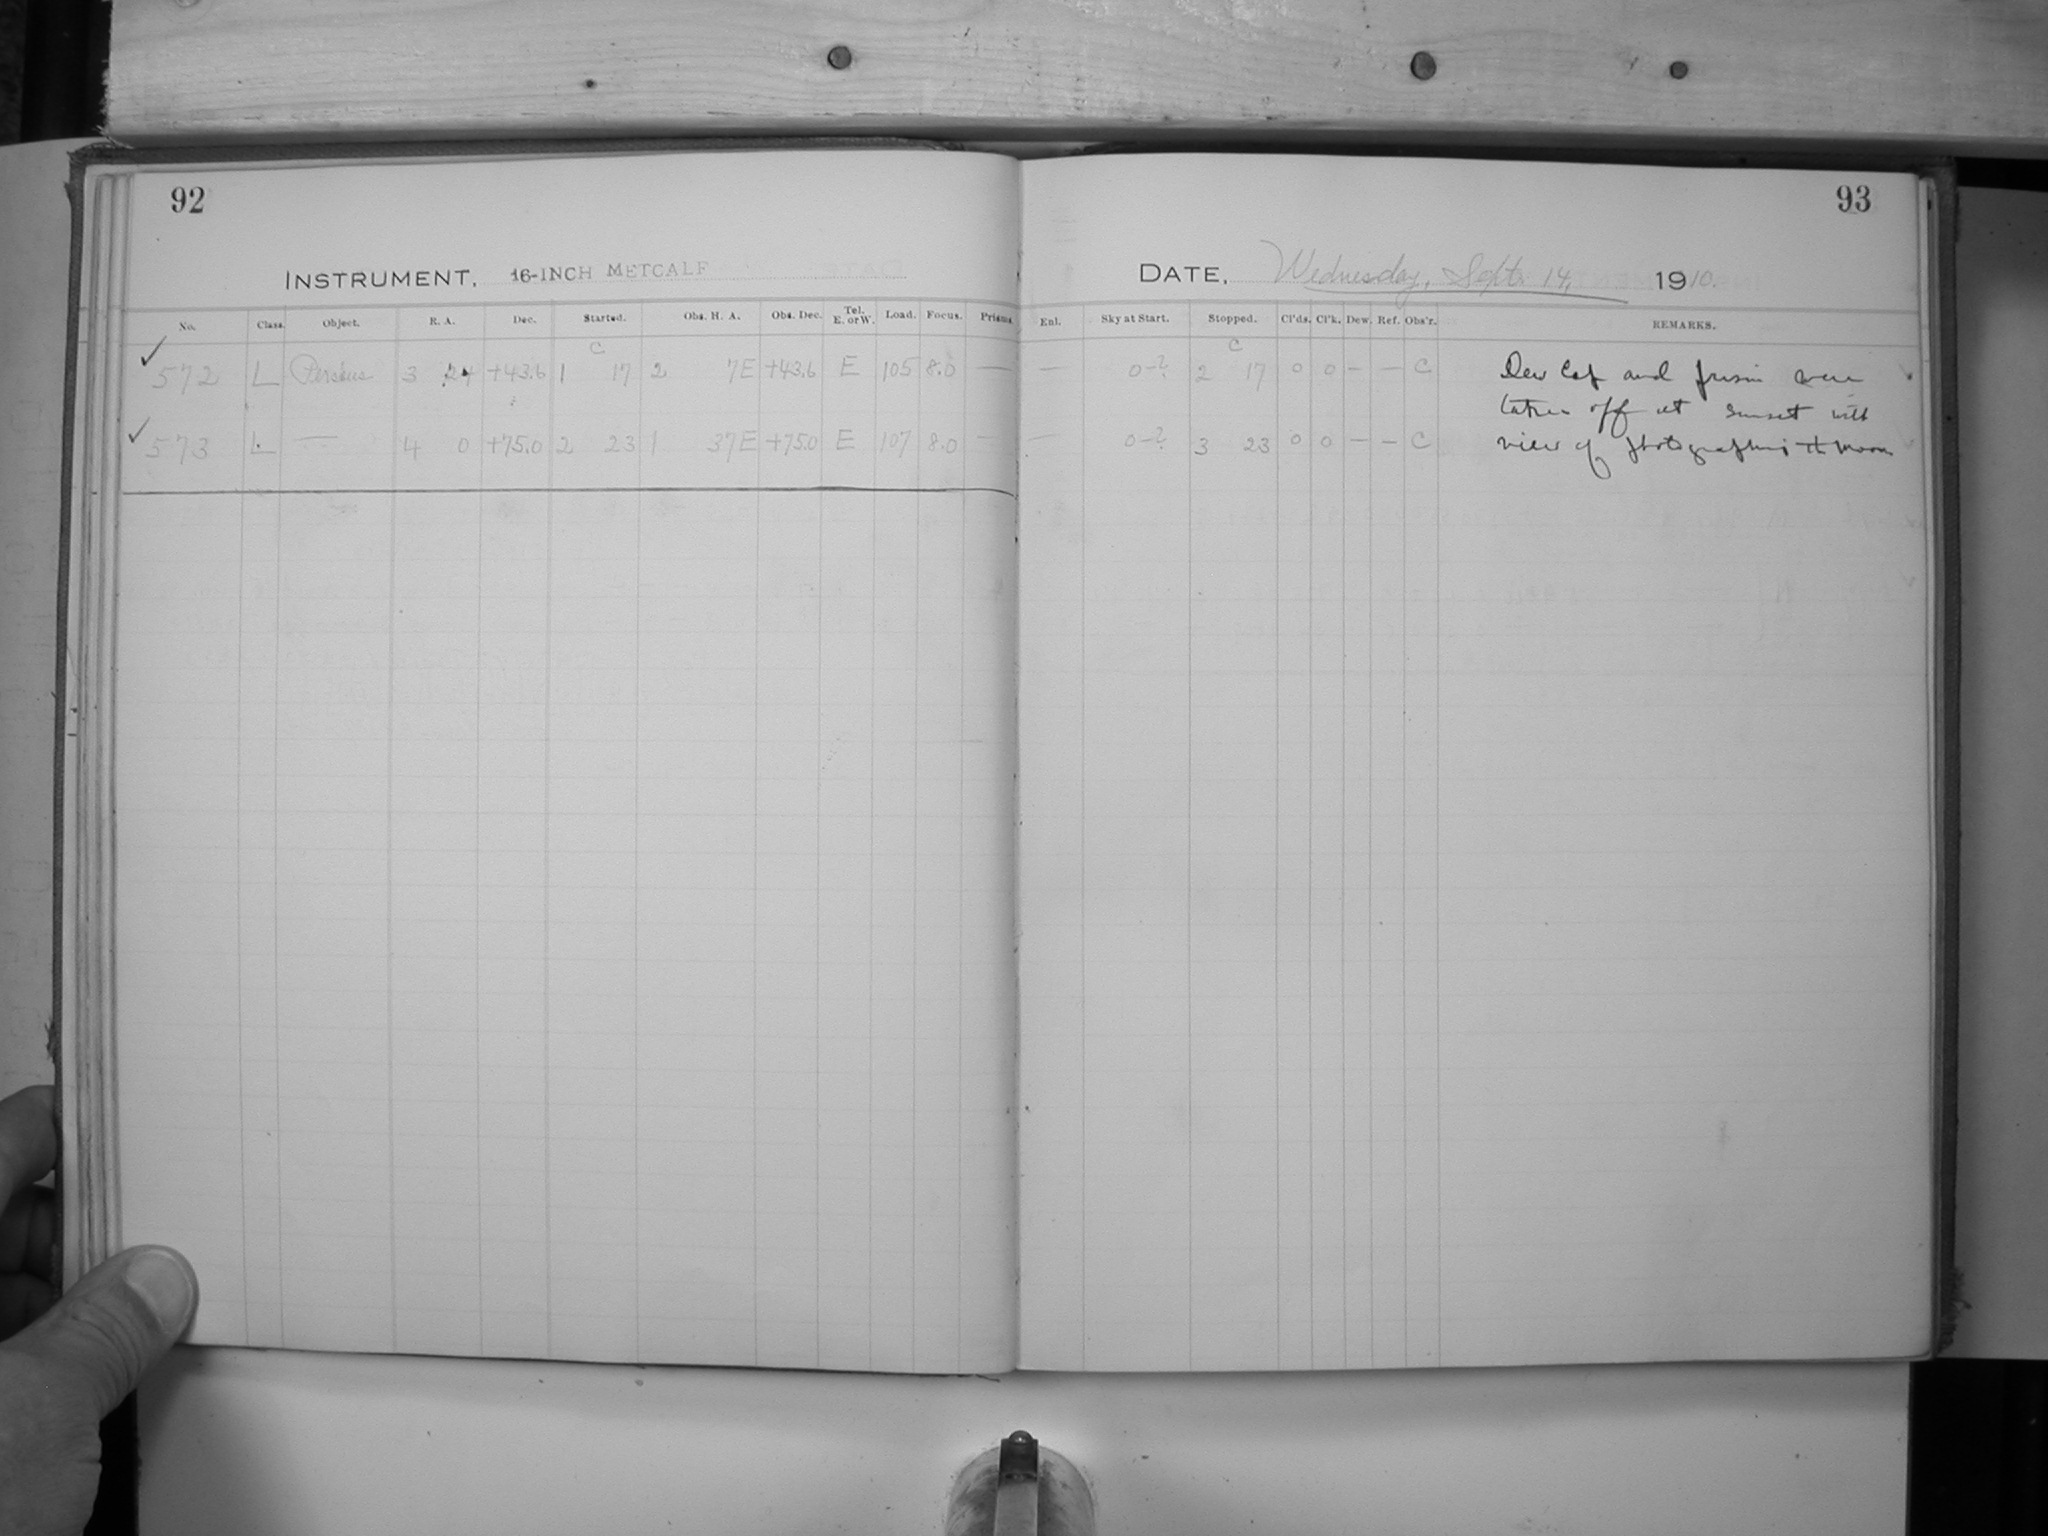 92
INSTRUMENT, 16-INCH METCALF
No. Class. Object. R. A. Dec. Started. Obs. H. A. Obs. Dec. Tel. E. or W. Load. Focus. Prisms.
c
✓ 572 L Perseus 3 24 +43.6 1 17 2 7E +43.6 E 105 8.0 —
✓ 573 L — 4 0 +75.0 2 23 1 37E +75.0 E 107 8.0 —
93
DATE, Wednesday, Sept. 14, 1910.
Enl. Sky at Start. Stopped. Cl'ds. Cl'k. Dew. Ref. Obs'r. REMARKS.
c
— 0-? 2 17 0 0 — — C Dew Cap and prism were
taken off at sunset with
— 0-? 3 23 0 0 — — C view of photographing the moon